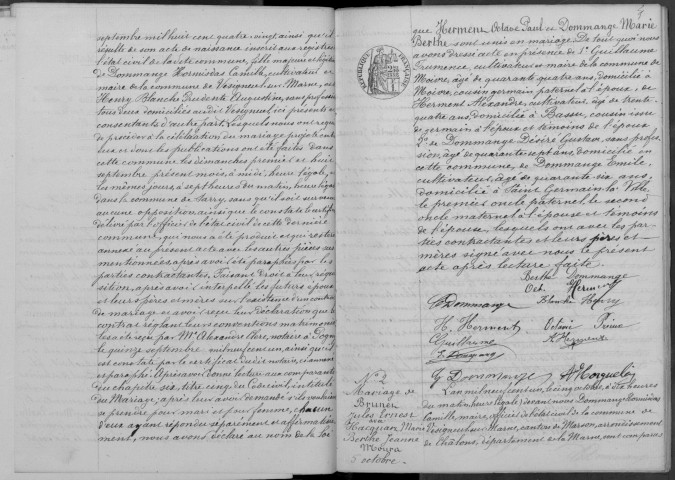 septembre mil huit cent quatre vingt, ainsi qu'il
résulte de son acte de naissance inscrit aux registres
de l'état civil de la dite commune, fille majeure et légitime
de Dommange Hormisdas Camille, cultivateur et
maire de la commune de Vésigneul sur Marne, et de
Henry Blanche Prudente Augustine, sans profession
tous deux domiciliés audit Vésigneul ici présents et
consentants d'autre part. Lesquels nous ont requis
de procéder à la célébration du mariage projeté entre
eux et dont les publications ont été faites dans
cette commune les dimanches premier et huit
septembre présent mois, à midi, heure légale, et
les mêmes jours, à sept heures du matin, heure légale
dans la commune de Sarry, sans qu'il soit survenu
aucune opposition ainsi que le constate le certificat
délivré par l'officier de l'état civil de cette dernière
commune, qui nous a été produit et qui restera
annexé au présent acte avec les autres pièces au
mentionnées, après avoir été paraphé par les
parties contractantes. Faisant droit à leur réqui
sition, après avoir interpellé les futurs époux
et leurs pères et mères sur l'existence d'un contrat
de mariage et avoir reçu leur déclaration que le
contrat réglant leurs conventions matrimoniales
a été reçu par Me Alexandre, notaire à Pogny
le quinze septembre mil neuf cent un, ainsi qu'il
est constaté par le certificat dudit notaire, ci annexé
et paraphé. Après avoir donné lecture aux comparants
du chapitre six, titre cinq du Code civil, intitulé
du Mariage, après leur avoir demandé s'ils veulent
se prendre pour mari et pour femme, chacun
d'eux ayant répondu séparément et affirmative
ment, nous avons déclaré au nom de la loi
que Herment Octave Paul et Dommange Marie
Berthe sont unis en mariage. De tout quoi nous
avons dressé acte en présence de 1° Guillaume
Prudence, cultivateur et maire de la commune de
Moivre, âgé de quarante quatre ans, domicilié à
Moivre, cousin germain paternel à l'époux, de
Herment Alexandre, cultivateur, âgé de trente
quatre ans, domicilié à Bassu, cousin issu
de germain à l'époux et témoins de l'époux
2° de Dommange Désiré Gustave, sans profes
sion, âgé de quarante sept ans, domicilié en
cette commune, de Dommange Emile,
cultivateur, âgé de quarante six ans,
domicilié à Saint Germain la Ville,
le premier oncle paternel, le second
oncle maternel à l'épouse et témoins
de l'épouse, lesquels ont avec les par
ties contractantes et leurs pères et
mères signé avec nous le présent
acte après lecture faite.
Berthe Dommange
Oct. Herment
Dommange Blanche Henry
H. Herment Octavie
Guillaume A. Herment
G. Dommange
N° 2
Mariage de
Brunier
Jules
avec
Marie
Berthe Jeanne
5 octobre.
L'an mil neuf cent un, le cinq octobre, à dix heures
du matin, heure légale, devant nous Dommange Hormisdas
Camille, maire, officier de l'état civil de la commune de
Vésigneul sur Marne, canton de Marson, arrondissement
de Châlons, département de la Marne, ont comparu